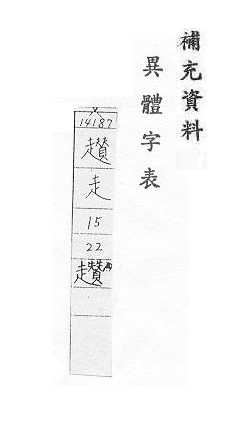 補充資料
異體字表
14187
走
15
22
趲